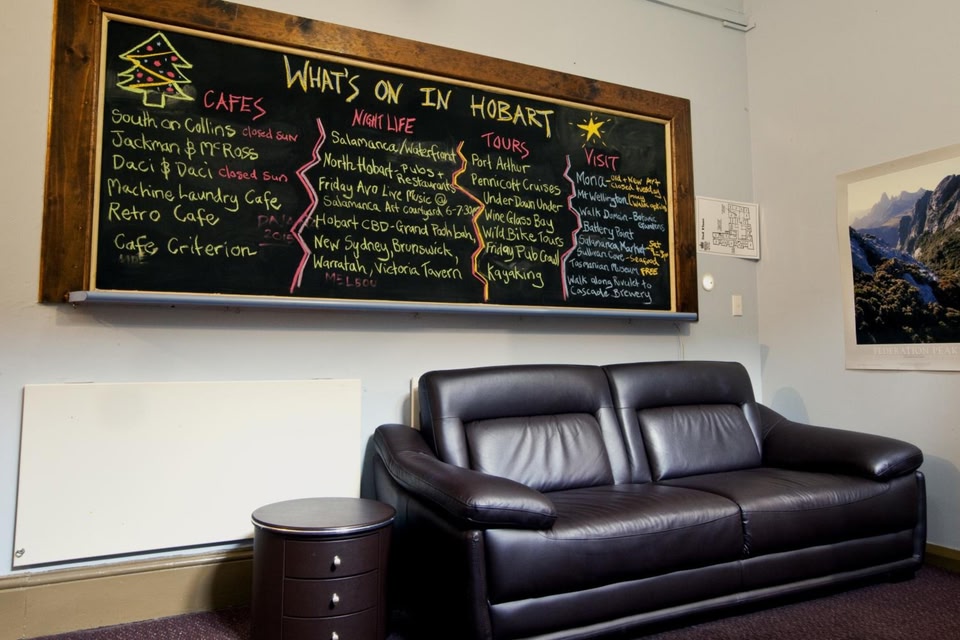 WHAT'S ON IN HOBART
CAFES
South on Collins closed sun
Jackman & McRoss
Daci & Daci closed sun
Machine Laundry Cafe
Retro Cafe
Cafe Criterion
NIGHT LIFE
Salamanca/Waterfront
North Hobart-Pubs +
Restaurants
Friday Avo Live Music @
Salamanca Art courtyard 6-7:30
Hobart CBD-Grand Poohbah,
New Sydney, Brunswick,
Warratah, Victoria Tavern
TOURS
Port Arthur
Pennicott Cruises
Under Down Under
Wine Glass Bay
Wild Bike Tours
Friday Pub Crawl
Kayaking
VISIT
Mona- old + New Art
closed tuesday
Mt Wellington
Walk Domain- Botanic
Gardens
Battery Point
Salamanca Market Sat
Sullivan Cove- Seafood
Tasmanian Museum FREE
Walk along Rivulet to
Cascade Brewery
FEDERATION PEAK